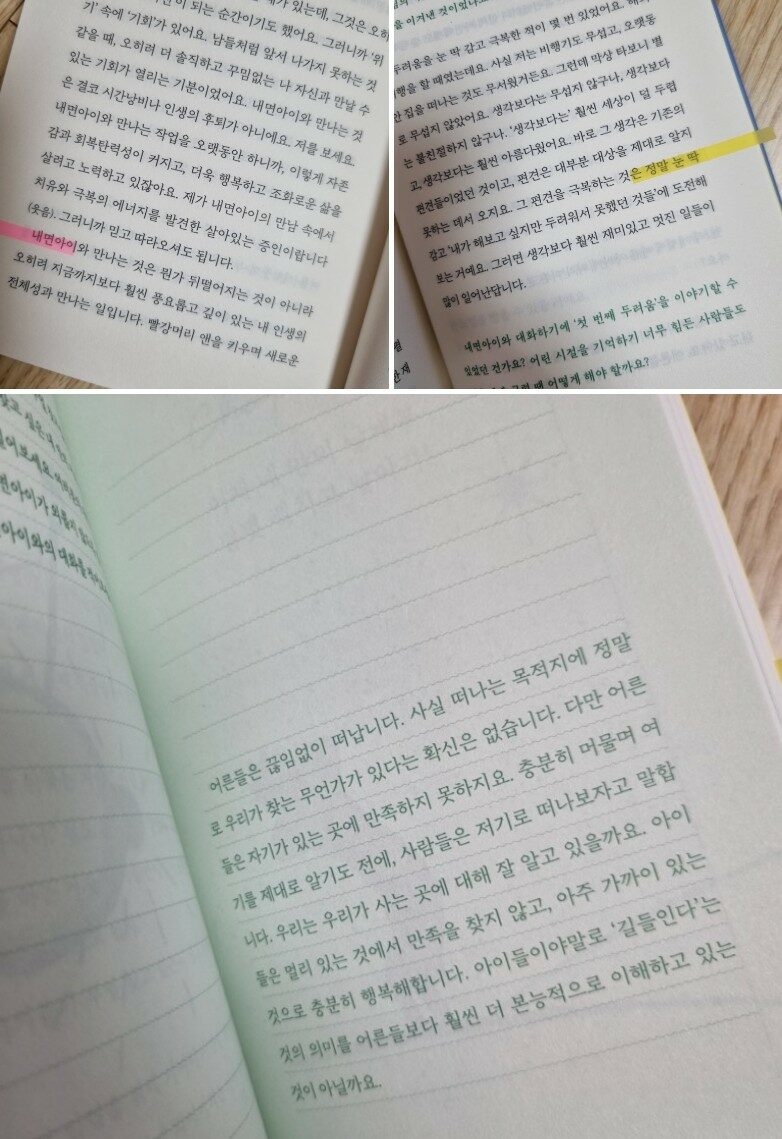 이 되는 순간이기도 했어요. 그러니까 '위
기' 속에 '기회'가 있어요. 남들처럼 앞서 나가지 못하는 것
같을 때, 오히려 더 솔직하고 꾸밈없는 나 자신과 만날 수
있는 기회가 열리는 기분이었어요. 내면아이와 만나는 것
은 결코 시간낭비나 인생의 후퇴가 아니에요. 저를 보세요.
내면아이와 만나는 작업을 오랫동안 하니까, 이렇게 자존
감과 회복탄력성이 커지고, 더욱 행복하고 조화로운 삶을
살려고 노력하고 있잖아요. 제가 내면아이의 만남 속에서
치유와 극복의 에너지를 발견한 살아있는 증인이랍니다
(웃음). 그러니까 믿고 따라오셔도 됩니다.
내면아이와 만나는 것은 뭔가 뒤떨어지는 것이 아니라
오히려 지금까지보다 훨씬 풍요롭고 깊이 있는 내 인생의
전체성과 만나는 일입니다. 빨강머리 앤을 키우며 새로운
두려움을 눈 딱 감고 극복한 적이 몇 번 있었어요.
행을 할 때였는데요. 사실 저는 비행기도 무섭고, 오랫동
안 집을 떠나는 것도 무서웠거든요. 그런데 막상 타보니 별
로 무섭지 않았어요. 생각보다는 무섭지 않구나, 생각보다
는 불친절하지 않구나. '생각보다는' 훨씬 세상이 덜 두렵
고, 생각보다는 훨씬 아름다웠어요. 바로 그 생각은 기존의
편견들이었던 것이고, 편견은 대부분 대상을 제대로 알지
못하는 데서 오지요. 그 편견을 극복하는 것은 정말 눈 딱
감고 '내가 해보고 싶지만 두려워서 못했던 것들'에 도전해
보는 거예요. 그러면 생각보다 훨씬 재미있고 멋진 일들이
많이 일어난답니다.
내면아이와 대화하기에 '첫 번째 두려움'을 이야기할 수
있었던 건가요? 어떤 시절을 기억하기 너무 힘든 사람들도
때 어떻게 해야 할까요?
어른들은 끊임없이 떠납니다. 사실 떠나는 목적지에 정말
로 우리가 찾는 무언가가 있다는 확신은 없습니다. 다만 어른
들은 자기가 있는 곳에 만족하지 못하지요. 충분히 머물며 여
기를 제대로 알기도 전에, 사람들은 저기로 떠나보자고 말합
니다. 우리는 우리가 사는 곳에 대해 잘 알고 있을까요. 아이
들은 멀리 있는 것에서 만족을 찾지 않고, 아주 가까이 있는
것으로 충분히 행복해합니다. 아이들이야말로 '길들인다'는
것의 의미를 어른들보다 훨씬 더 본능적으로 이해하고 있는
것이 아닐까요.